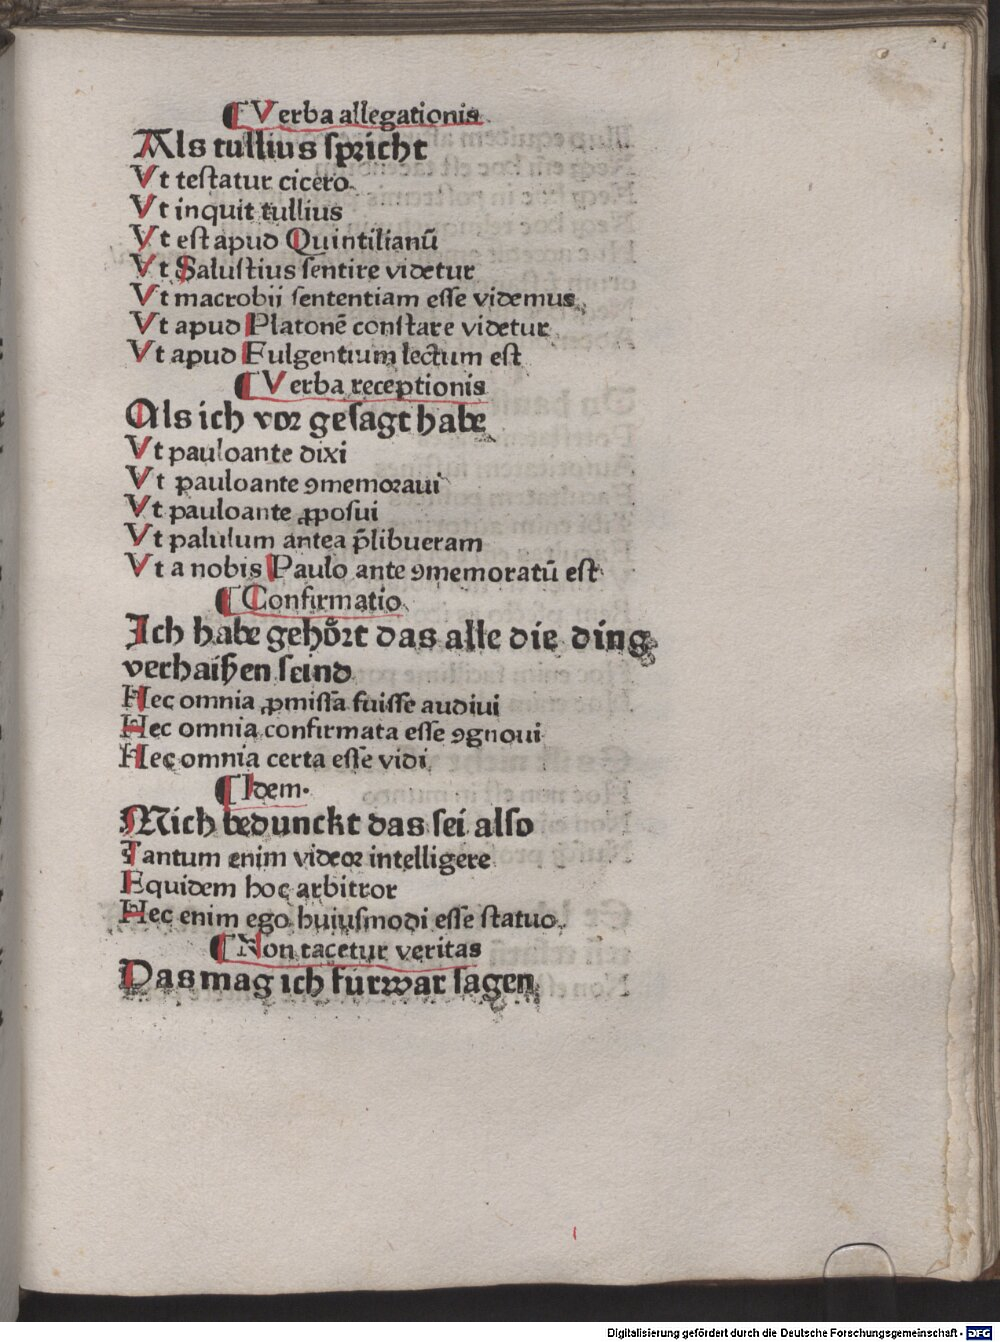 ¶ Verba allegationis.
Als tullius spricht
Vt testatur cicero.
Vt inquit tullius
Vt est apud Quintilianū
Vt Salustius sentire videtur
Vt macrobii sententiam esse videmus.
Vt apud Platonē constare videtur
Vt apud Fulgentium lectum est
¶ Verba receptionis
Als ich vor gesagt habe
Vt pauloante dixi
Vt pauloante ꝯmemoraui
Vt pauloante ꝓposui
Vt palulum antea p̄libueram
Vt a nobis Paulo ante ꝯmemoratū est
¶ Confirmatio.
Ich habe gehoͤrt das alle die ding
verhaißen seind
Hec omnia ꝓmissa fuisse audiui
Hec omnia confirmata esse ꝯgnoui
Hec omnia certa esse vidi
¶ Idem.
Mich bedunckt das sei also
Tantum enim videor intelligere
Equidem hoc arbitror
Hec enim ego huiusmodi esse statuo.
¶ Non tacetur veritas
Das mag ich furwar sagen
Digitalisierung gefördert durch die Deutsche Forschungsgemeinschaft - DFG